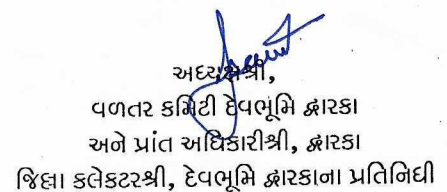 અધ્યક્ષશ્રી,
વળતર કમિટી દેવભૂમિ દ્વારકા
અને પ્રાંત અધિકારીશ્રી, દ્વારકા
જિલ્લા કલેકટરશ્રી, દેવભૂમિ દ્વારકાના પ્રતિનિધી